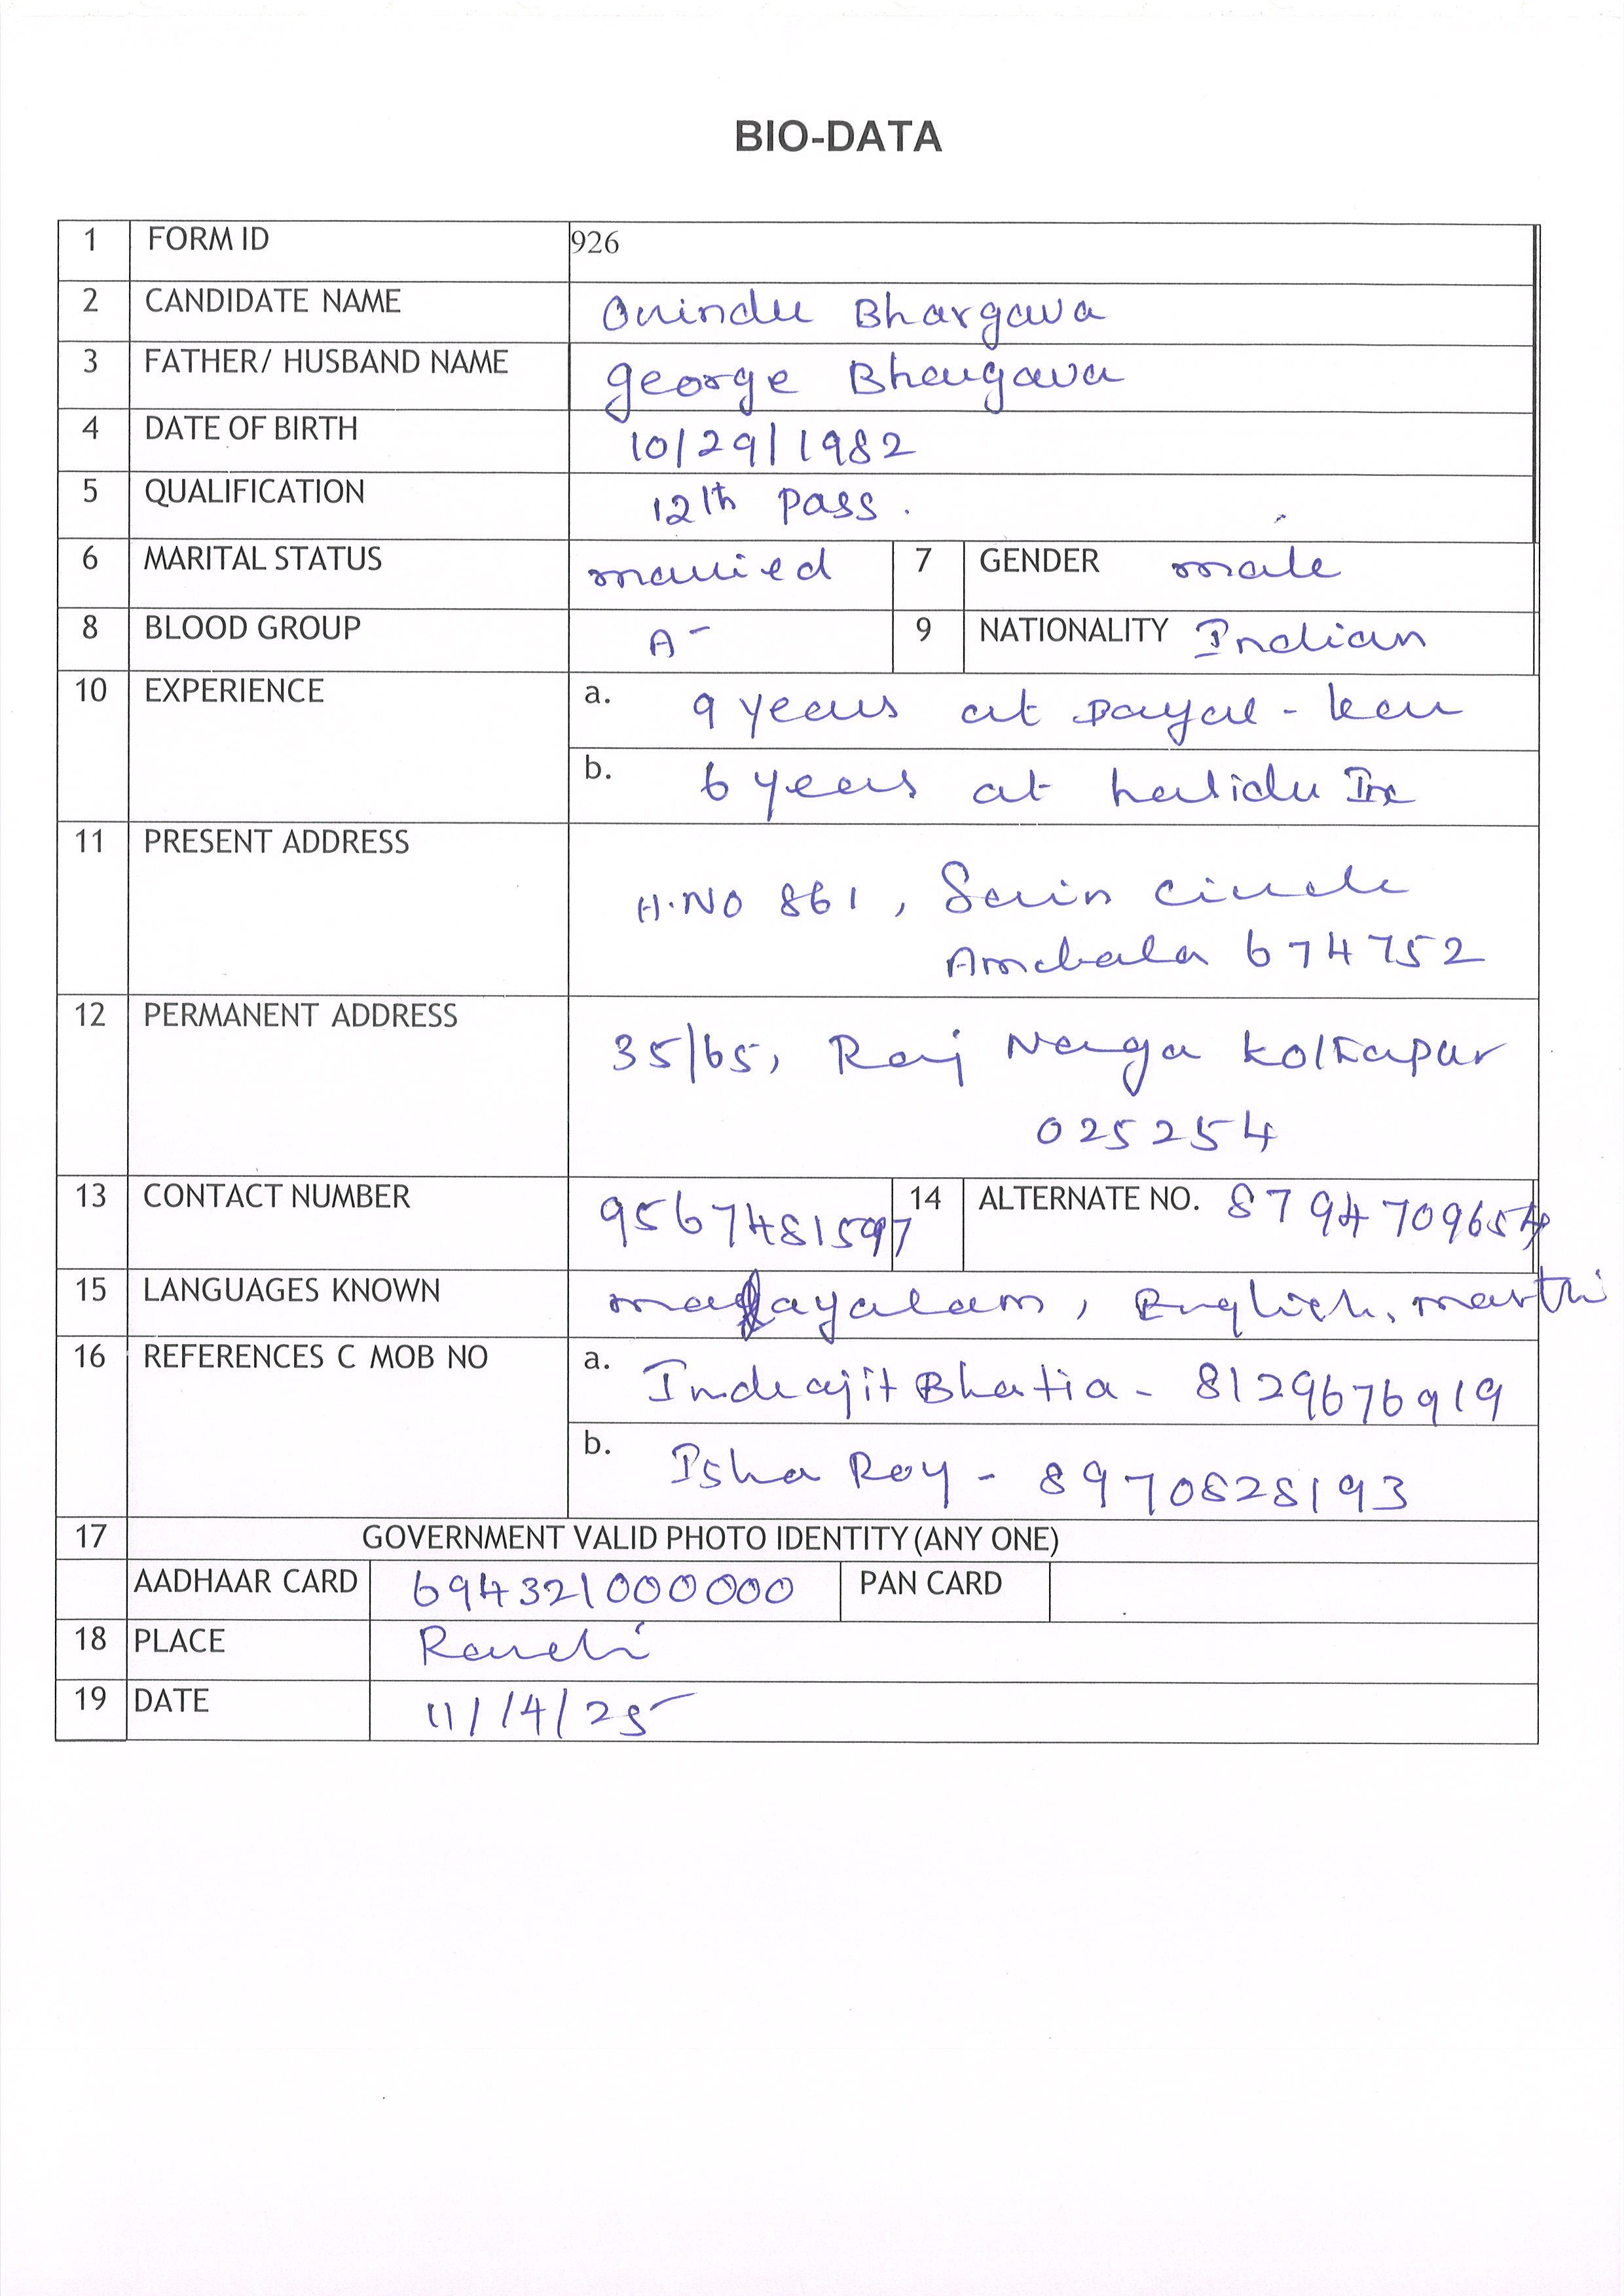 BIO-DATA
1 FORM ID 926
2 CANDIDATE NAME Onindu Bhargava
3 FATHER/ HUSBAND NAME george Bhargava
4 DATE OF BIRTH 10/29/1982
5 QUALIFICATION 12th pass.
6 MARITAL STATUS married 7 GENDER male
8 BLOOD GROUP A- 9 NATIONALITY Indian
10 EXPERIENCE a. 9 years at Dayal -
b. 6 years at
11 PRESENT ADDRESS H.NO 861, circle
Ambala 674752
12 PERMANENT ADDRESS 35/65, Raj Naga Kolkapur
025254
13 CONTACT NUMBER 9567481597 14 ALTERNATE NO. 8794709654
15 LANGUAGES KNOWN malayalam, English, marthi
16 REFERENCES C MOB NO a. Indrajit Bhatia - 8129676919
b. Isha Roy - 8970828193
17 GOVERNMENT VALID PHOTO IDENTITY (ANY ONE)
AADHAAR CARD 694321000000 PAN CARD
18 PLACE Ranchi
19 DATE 11/14/25